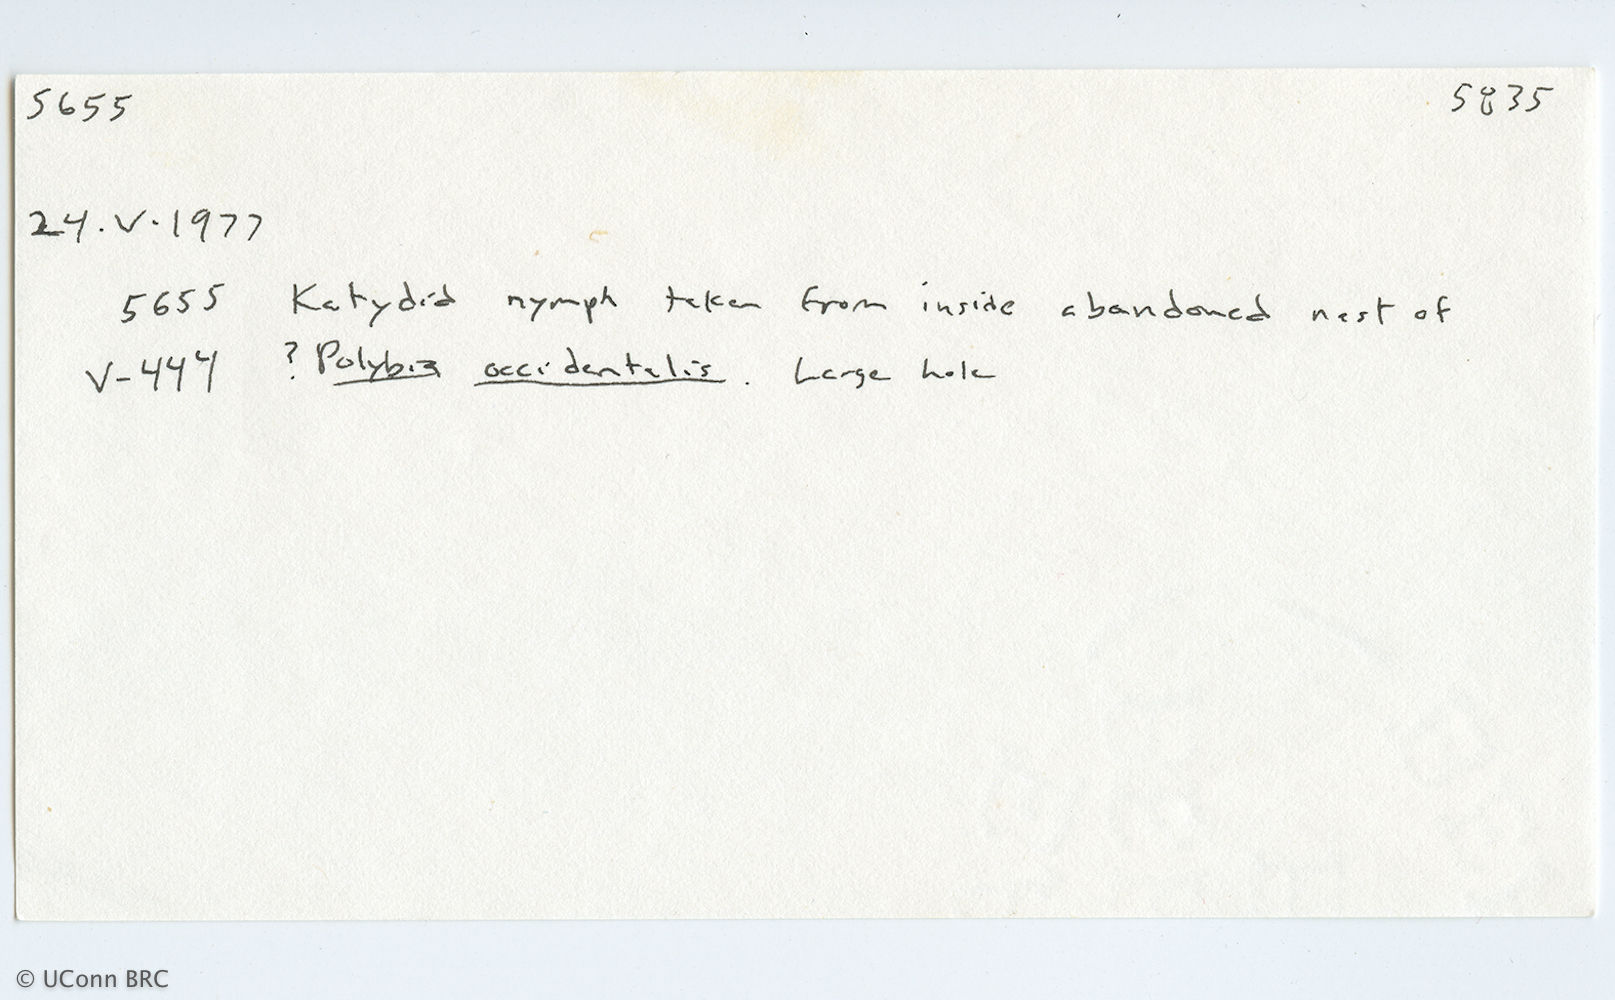 5655 5835
24.V.1977
5655 Katydid nymph taken from inside abandoned nest of
V-444 ? Polybia occidentalis. Large hole
© UConn BRC